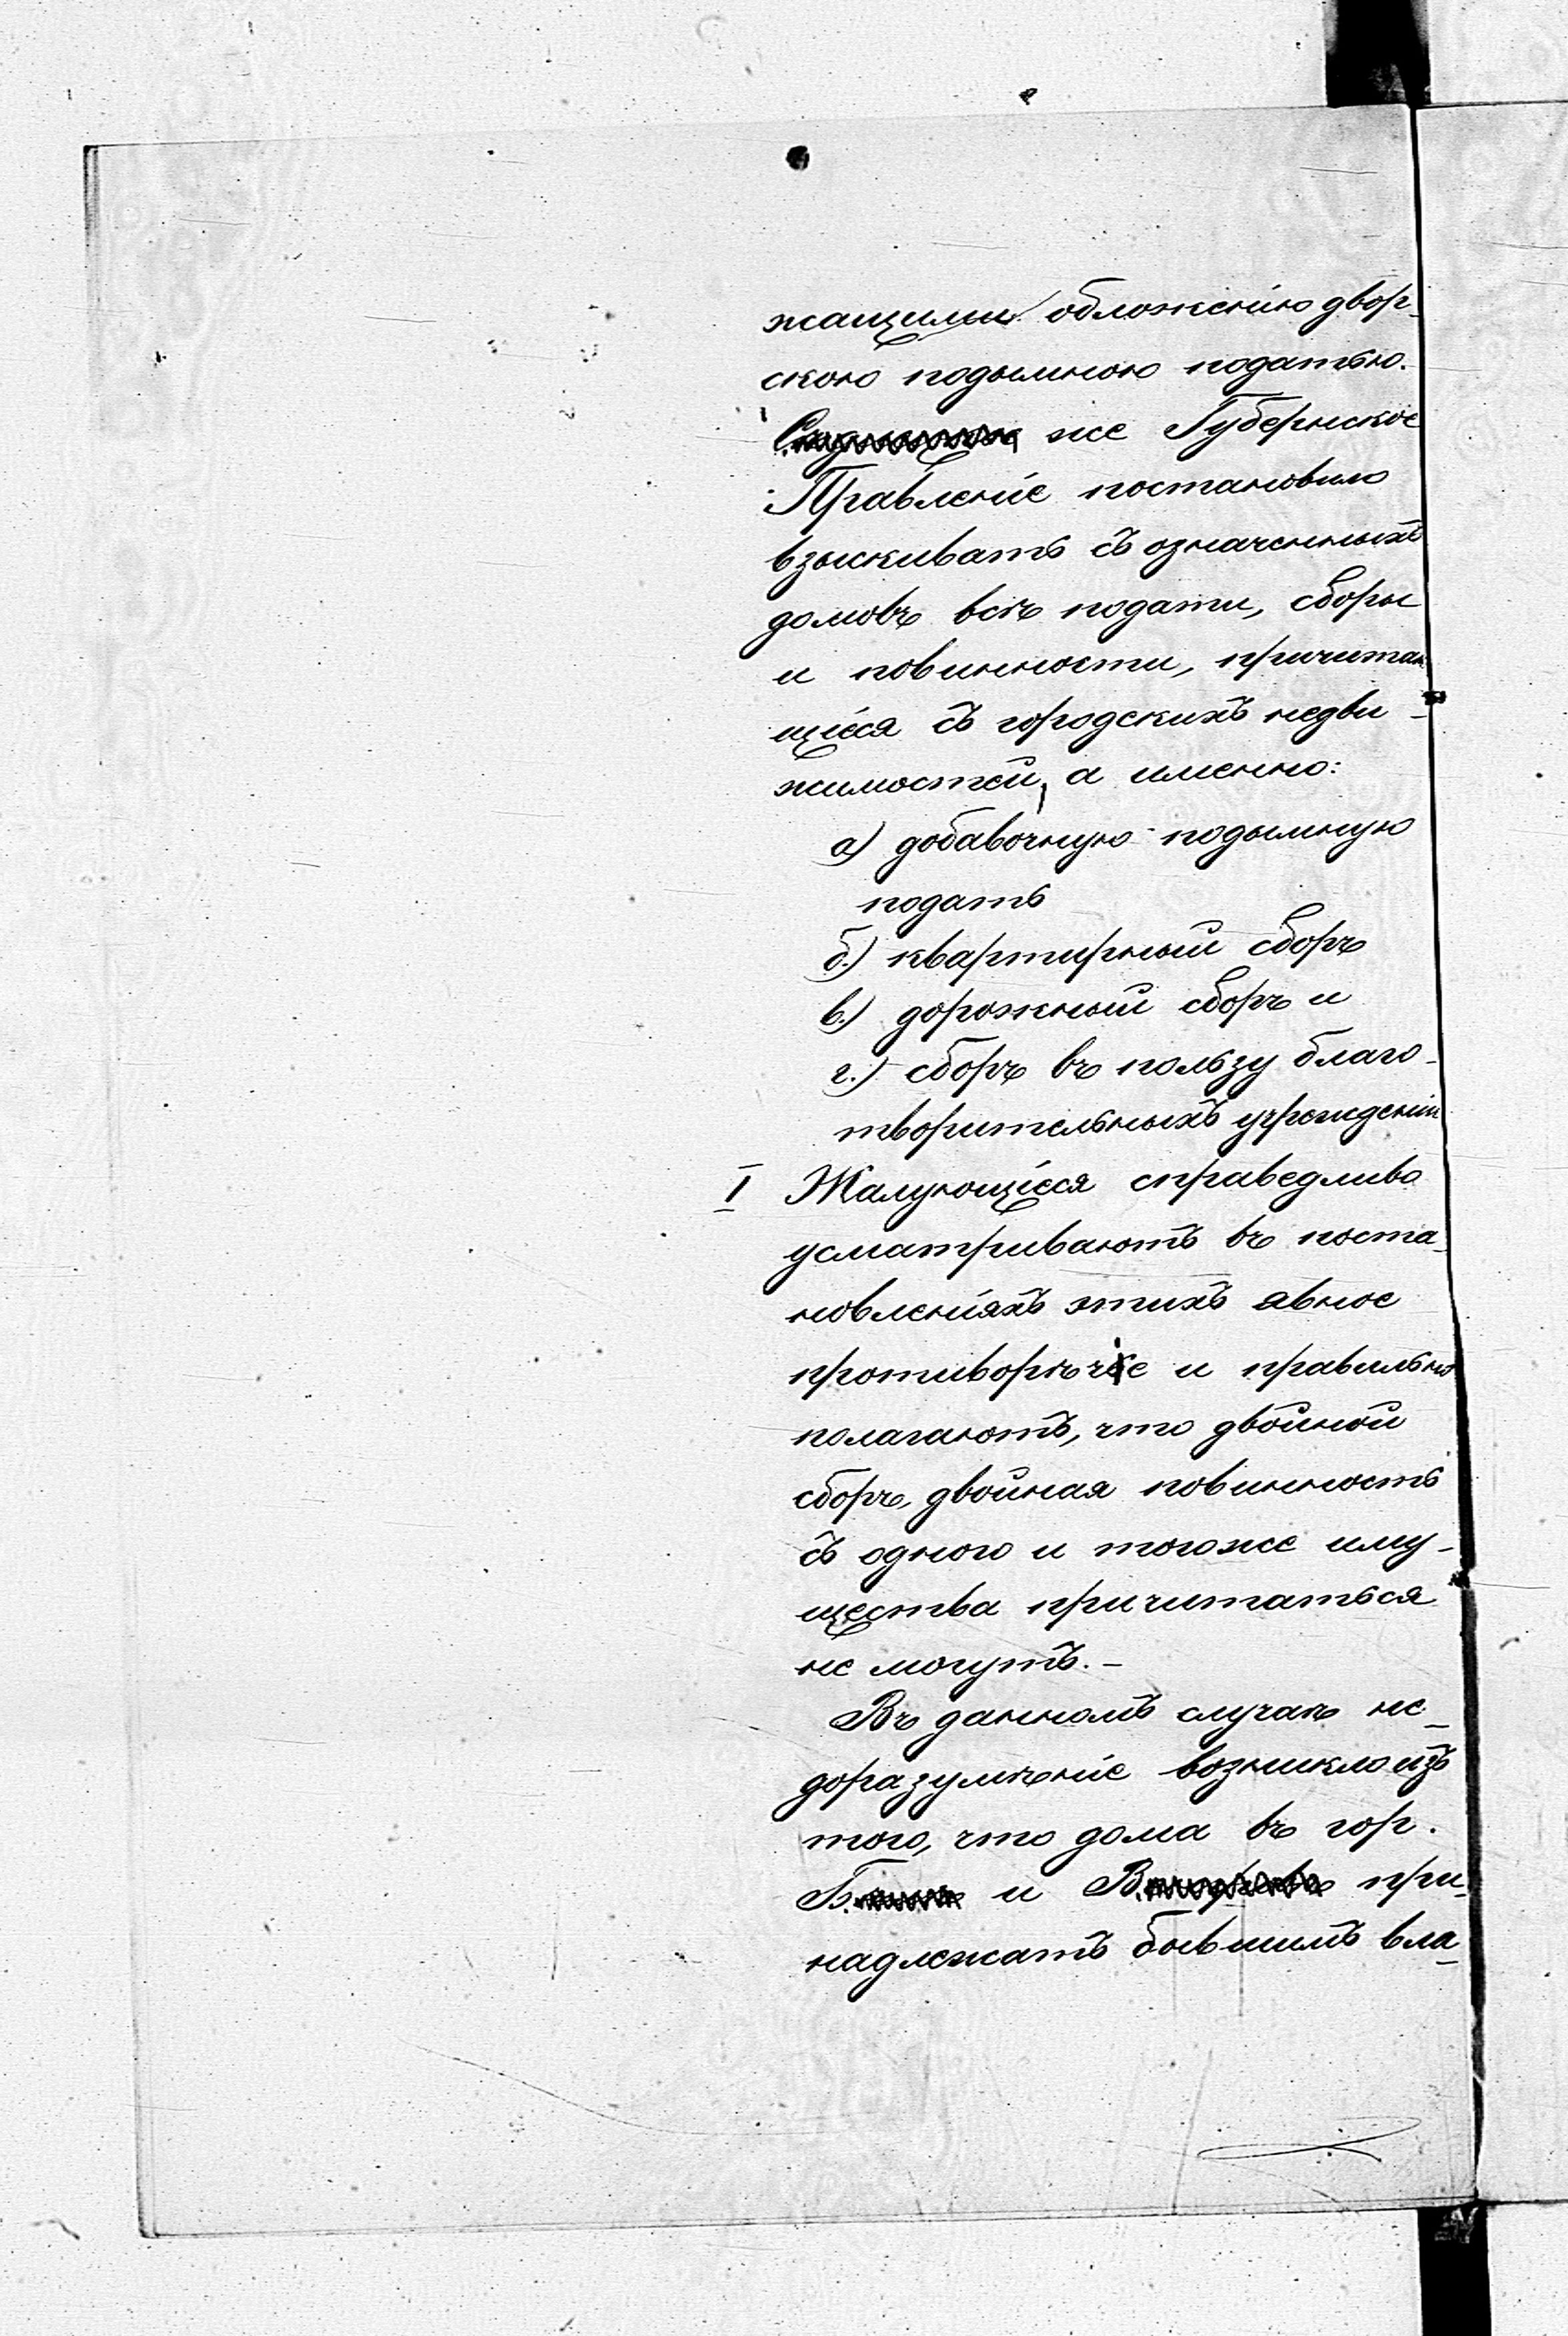 жащими обложенію двор-
скою подымною податью.
же Губернское
Правленіе постановило
взыскивать съ означенныхъ
домовъ всѣ подати, сборы
и повинности, причитаю
щіеся съ городскихъ недви-
жимостей, а именно:
а) добавочную подымную
подать
б.) квартирный сборъ
в.) дорожный сборъ и
г.) сборъ въ пользу благо-
творительныхъ учрежденій
I Жалующіеся справедливо
усматриваютъ въ поста-
новленіяхъ этихъ явное
противорѣчіе и правильно
полагаютъ, что двойной
сборъ, двойная повинность
съ одного и тогоже иму-
щества причитаться
не могутъ. –
Въ данномъ случаѣ не-
доразумѣніе возникло изъ
того, что дома въ гор.
Б. и В. при-
надлежатъ бывшимъ вла-